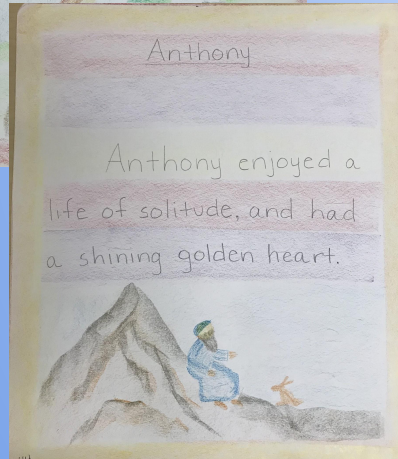 Anthony
Anthony enjoyed a
life of solitude, and had
a shining golden heart.